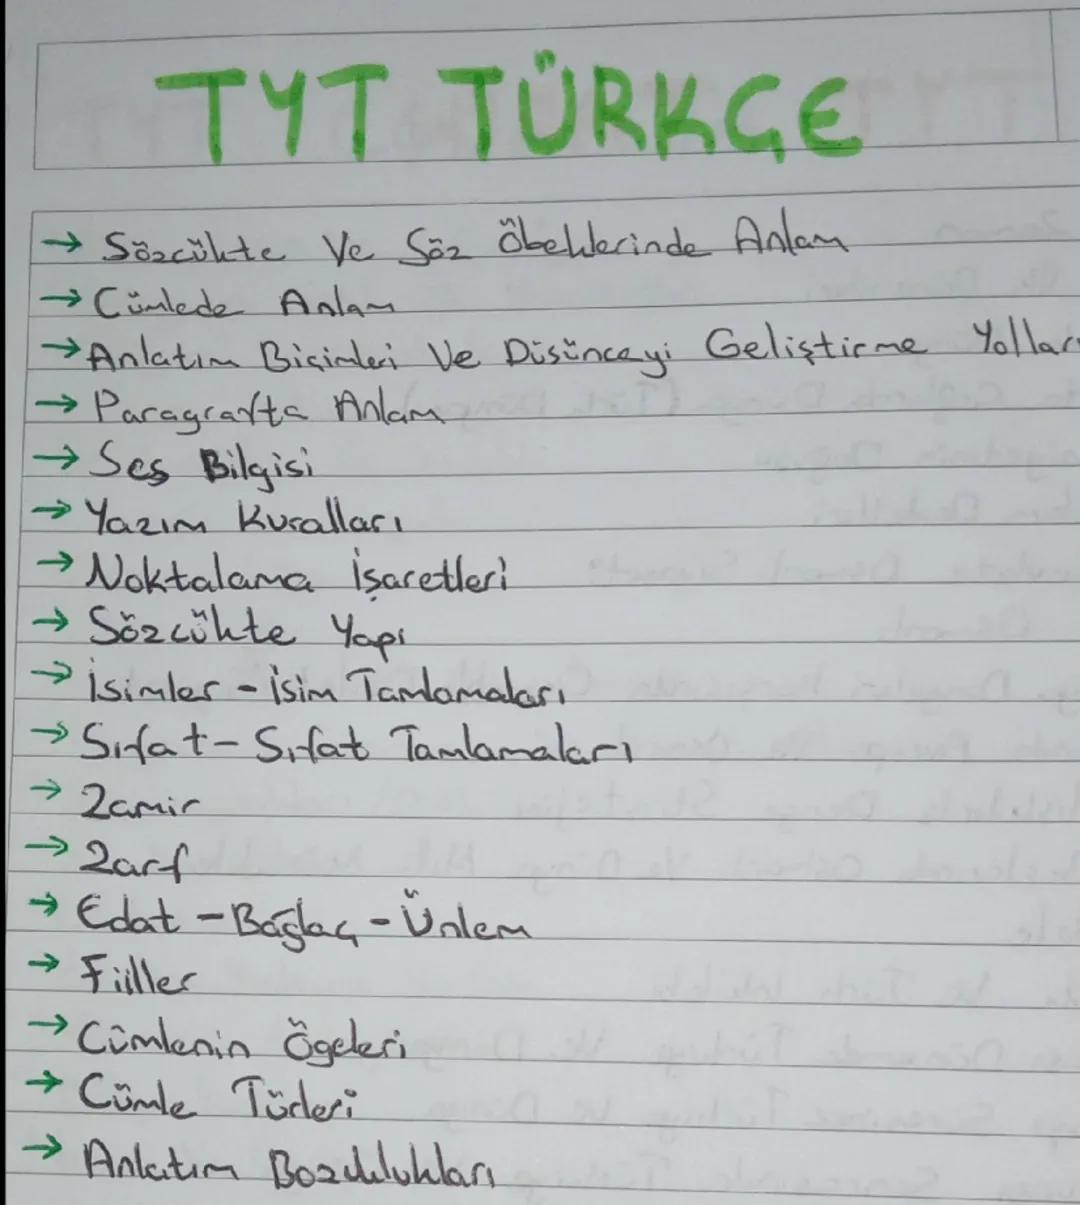 TYT TÜRKÇE
→ Sözcükte Ve Söz Öbeklerinde Anlam
→ Cümlede Anlam
→ Anlatım Biçimleri Ve Düşünceyi Geliştirme Yolları
→ Paragrafta Anlam
→ Ses Bilgisi
→ Yazım Kuralları
→ Noktalama İşaretleri
→ Sözcükte Yapı
→ İsimler - İsim Tamlamaları
→ Sıfat - Sıfat Tamlamaları
→ Zamir
→ Zarf
→ Edat - Bağlaç - Ünlem
→ Fiiller
→ Cümlenin Ögeleri
→ Cümle Türleri
→ Anlatım Bozuklukları